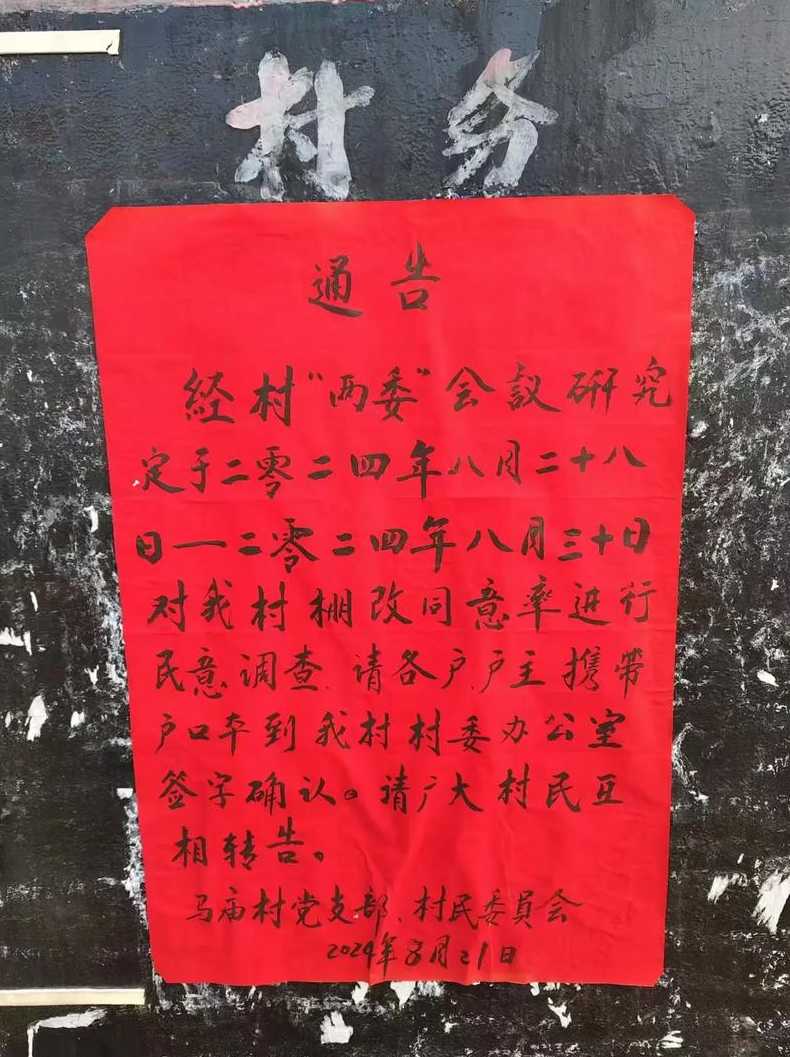 村务
通告
经村“两委”会议研究
定于二零二四年八月二十八
日—二零二四年八月三十日
对我村棚改同意率进行
民意调查、请各户、户主携带
户口本到我村村委办公室
签字确认。请广大村民互
相转告。
马庙村党支部、村民委員会
2024年8月21日